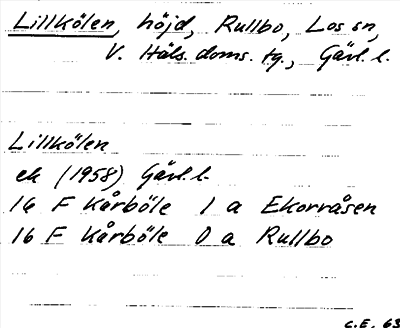 Lillkölen, höjd, Rullbo, Los sn,
V. Häls. doms. tg., Gävl. l.
Lillkölen
ek (1958) Gävl. l.
16 F Kårböle 1 a Ekorråsen
16 F Kårböle 0 a Rullbo
C.E. 63